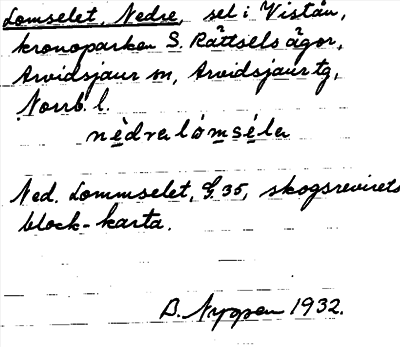 Lomselet, Nedre, sel i Vistån,
kronoparken S. Rättsels ägor,
Arvidsjaur sn, Arvidsjaur tg,
Norrb. l.
nèdra lòmséla
Ned. Lommselet, G 35, skogsrevirets
block-karta.
B. Nyppen 1932.